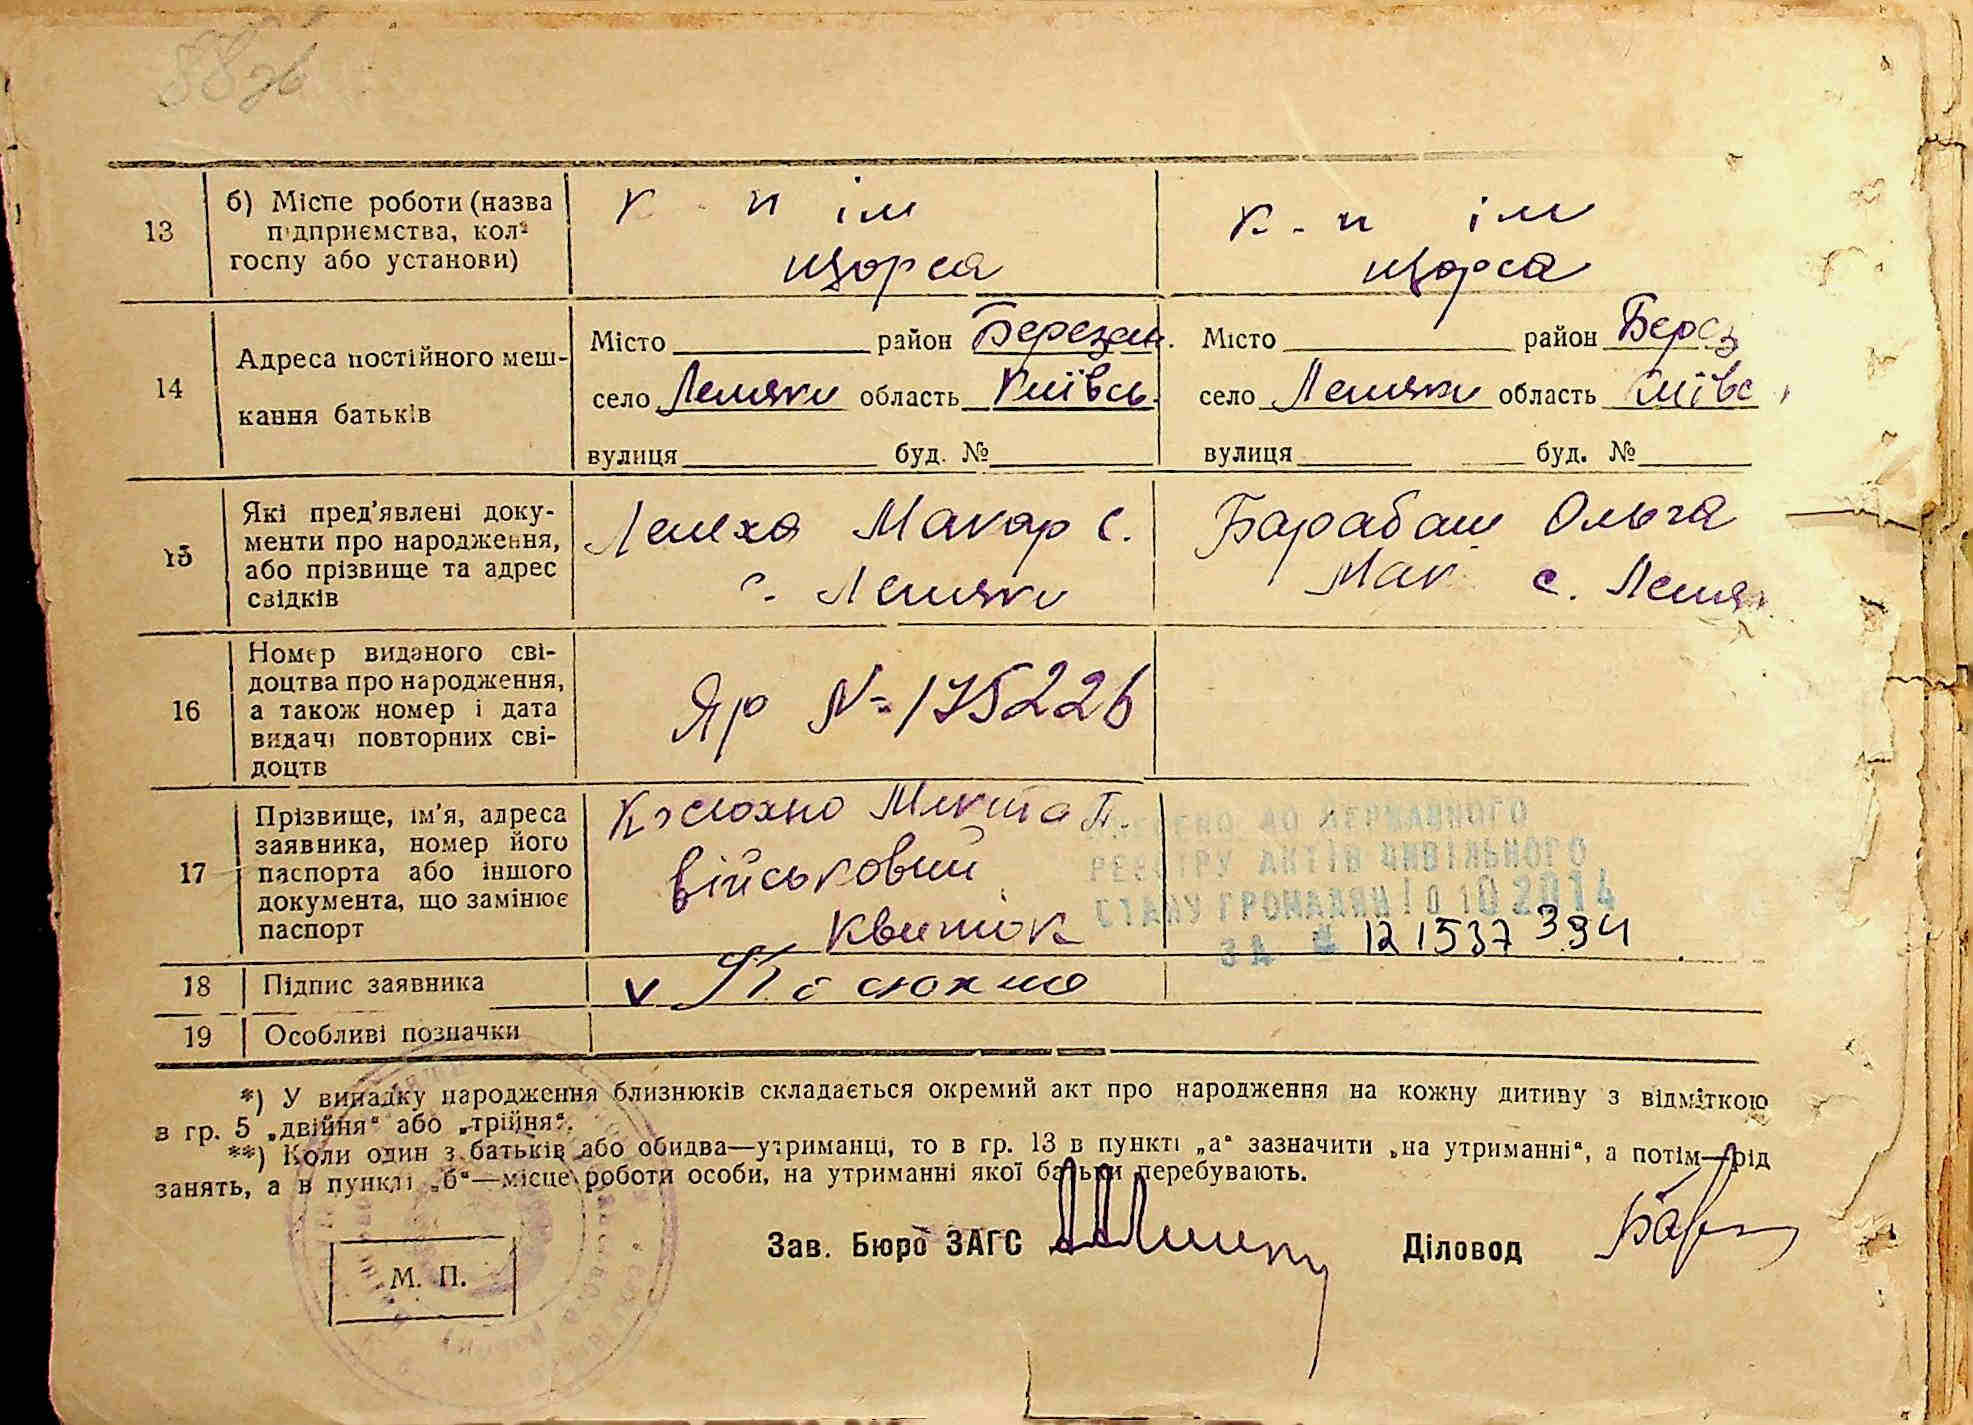 88зв
13
б) Місце роботи (назва
підприємства, кол-
госпу або установи)
к - п ім
Щорса
к - п ім
Щорса
14
Адреса постійного меш-
кання батьків
Місто район Березан.
село Лемяки область Київсь.
вулиця буд. №
Місто район Берез
село Лемяки область Київс
вулиця буд. №
15
Які пред'явлені доку-
менти про народження,
або прізвище та адрес
свідків
Лемеха Макар С.
с. Лемяки
Барабаш Ольга
Мак с. Лемяк
16
Номер виданого сві-
доцтва про народження,
а також номер і дата
видачі повторних сві-
доцтв
Яр № 175226
17
Прізвище, ім'я, адреса
заявника, номер його
паспорта або іншого
документа, що замінює
паспорт
Косюхно Микита П.
військовий
квиток
ВНЕСЕНО ДО ДЕРЖАВНОГО
РЕЄСТРУ АКТІВ ЦИВІЛЬНОГО
СТАНУ ГРОМАДЯН 10 10 2014
ЗА # 121537394
18
Підпис заявника
v Косюхно
19
Особливі позначки
*) У випадку народження близнюків складається окремий акт про народження на кожну дитину з відміткою
в гр. 5 „двійня“ або „трійня“.
**) Коли один з батьків або обидва—утриманці, то в гр. 13 в пункті „а“ зазначити „на утриманні“, а потім—рід
занять, а в пункті „б“—місце роботи особи, на утриманні якої батьки перебувають.
Зав. Бюро ЗАГС
Діловод
М. П.